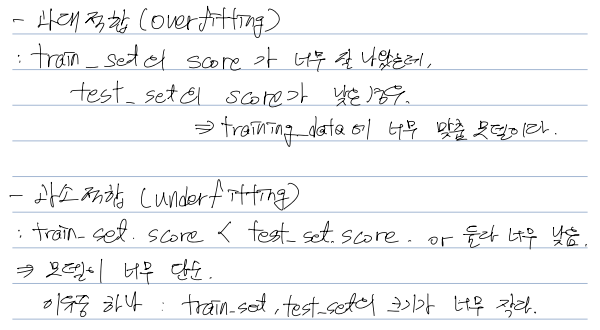 - 과대적합 (overfitting)
: train_set의 score가 너무 잘 나왔는데,
test_set의 score가 낮은경우.
⇒ training_data에 너무 맞춤 모델이다.
- 과소적합 (underfitting)
: train_set.score < test_set.score. or 둘다 너무 낮음.
⇒ 모델이 너무 단순.
이유중 하나 : train_set, test_set의 크기가 너무 작다.